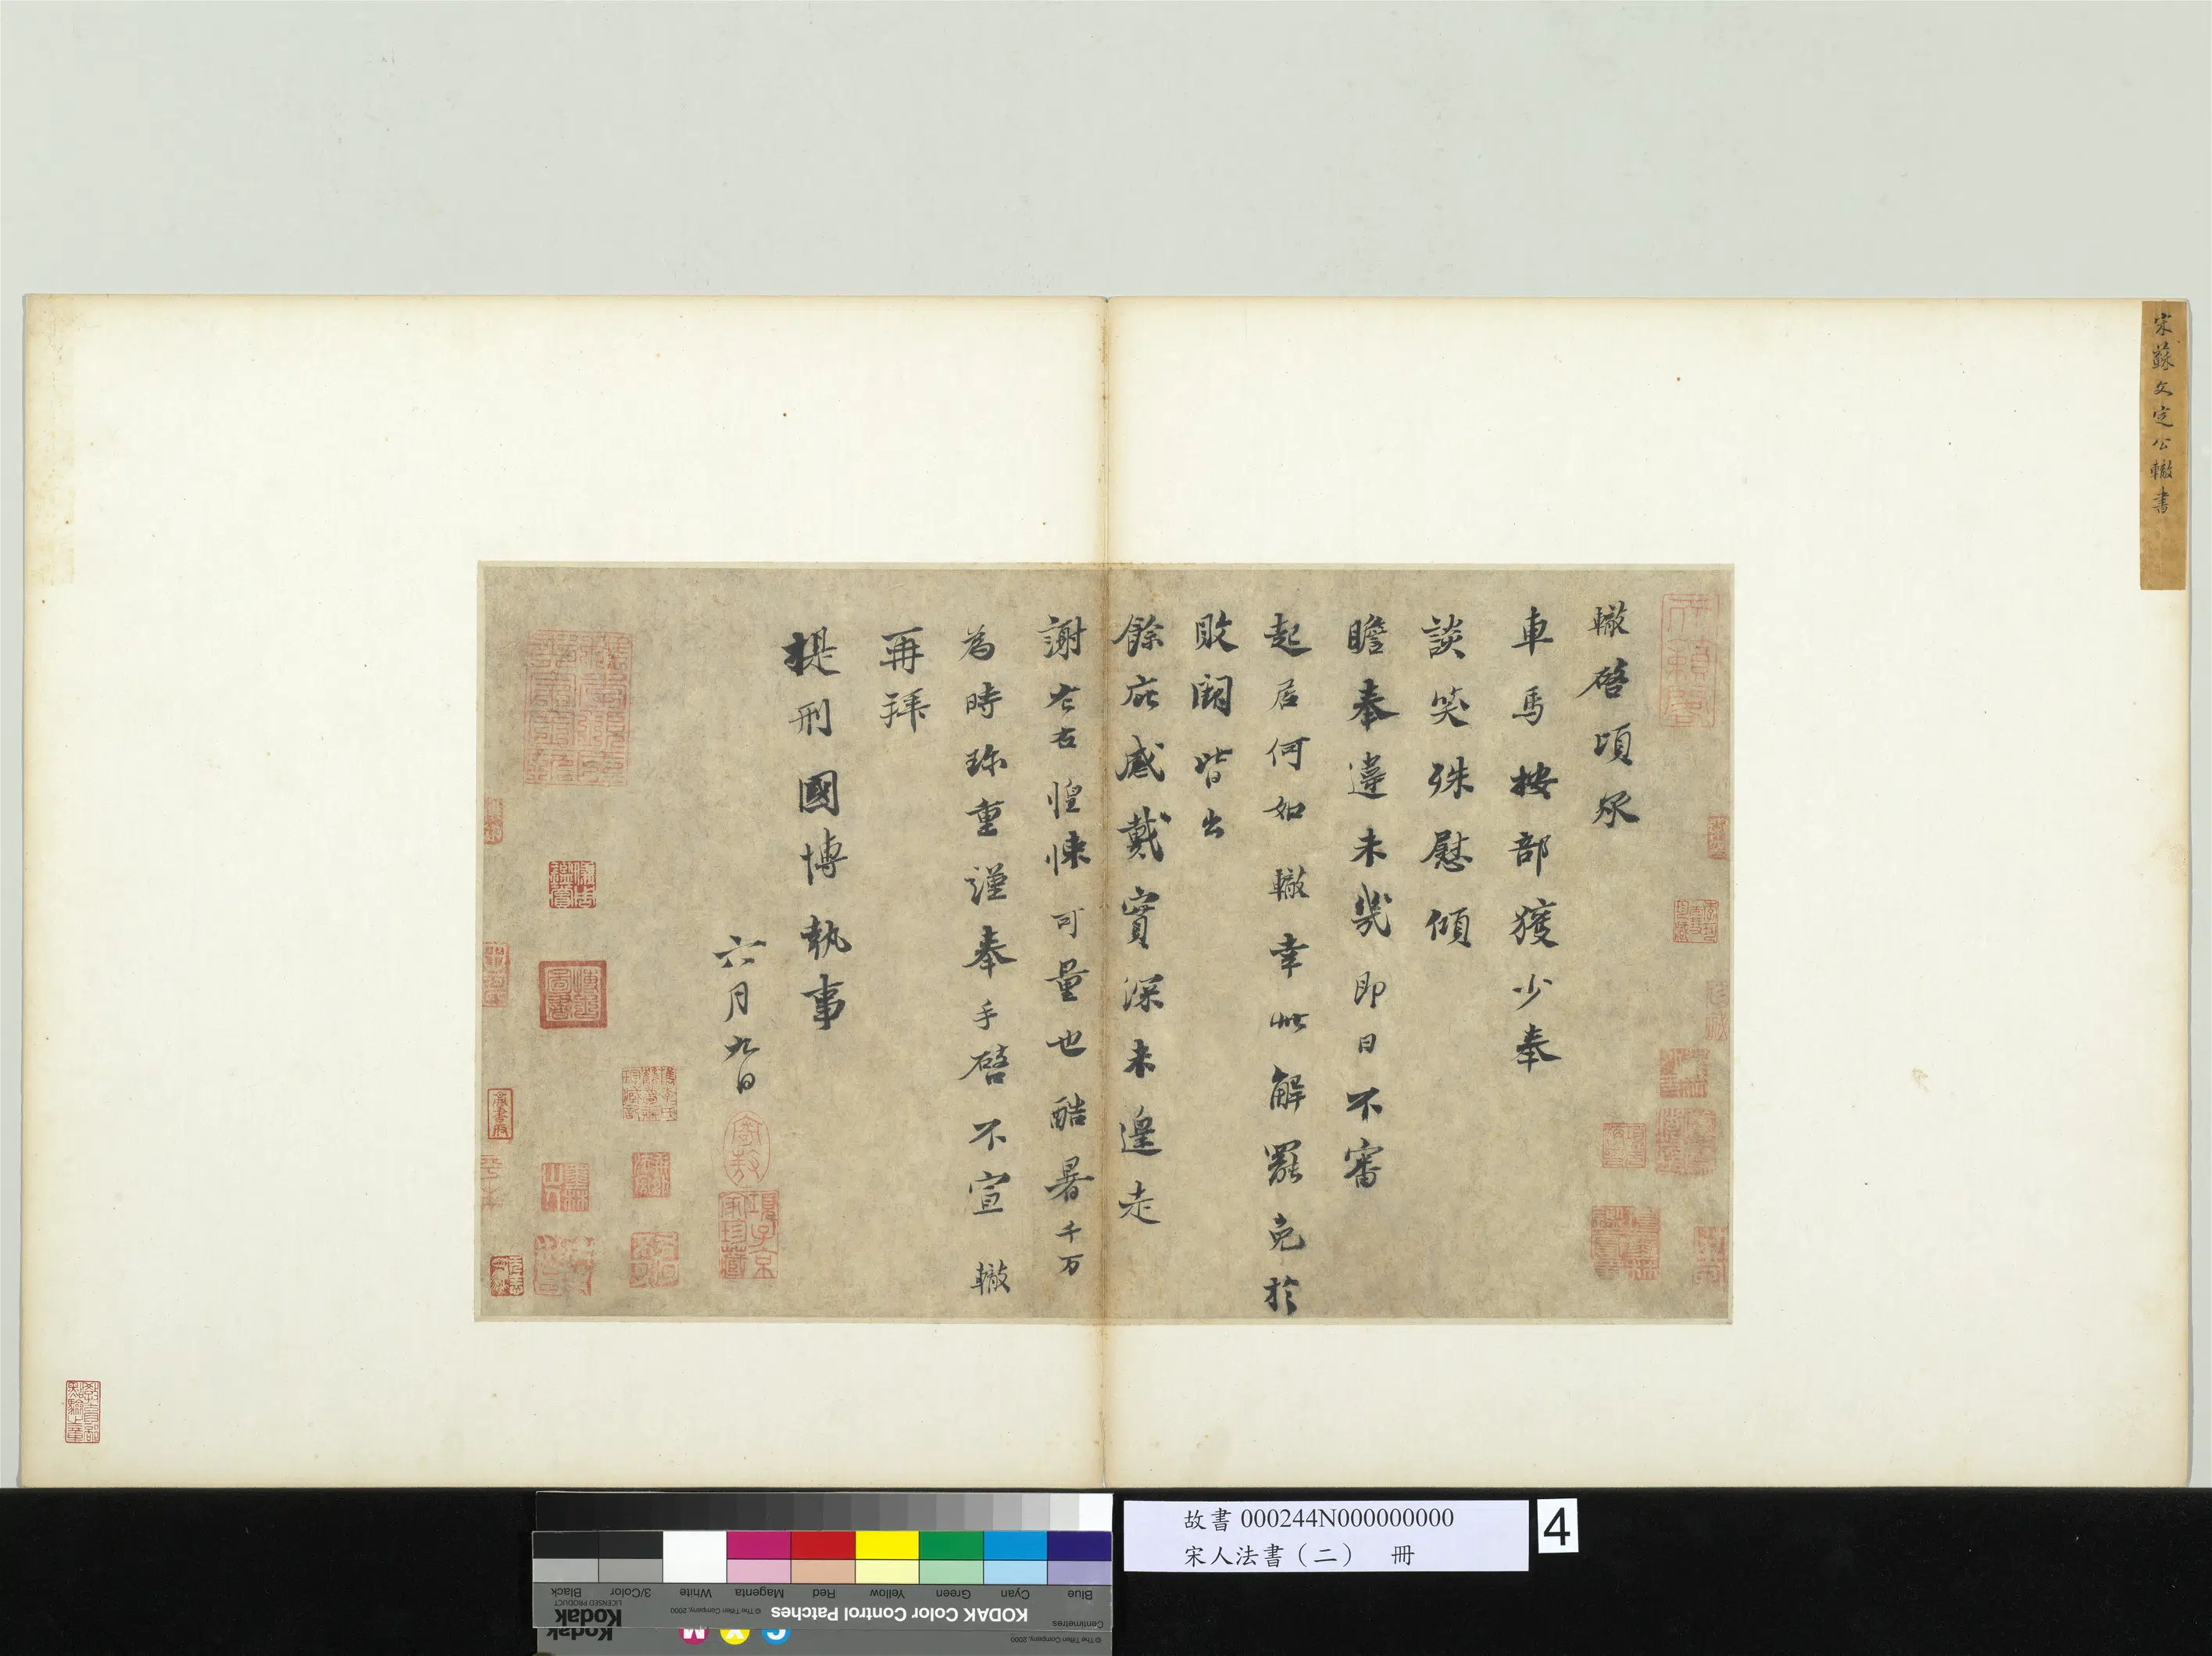 宋蘇文定公轍書
轍啓頃承
車馬按部獲少奉
談笑殊慰傾
瞻奉違未幾即日不審
起居何如轍幸此解罷免於
敗闕皆出
餘庇感戴實深未遑走
謝左右惶悚可量也酷暑千万
為時珎重謹奉手啓不宣轍
再拜
提刑國博執事
六月九日
項子京家珍藏
教育部點驗之章
故書 000244N000000000
宋人法書（二） 冊
4
Blue Cyan Green Yellow Red Magenta White 3/Color Black
KODAK Color Control Patches © The Tiffen Company, 2000 Kodak LICENSED PRODUCT
Centimetres
© The Tiffen Company, 2000 Kodak
C Y M